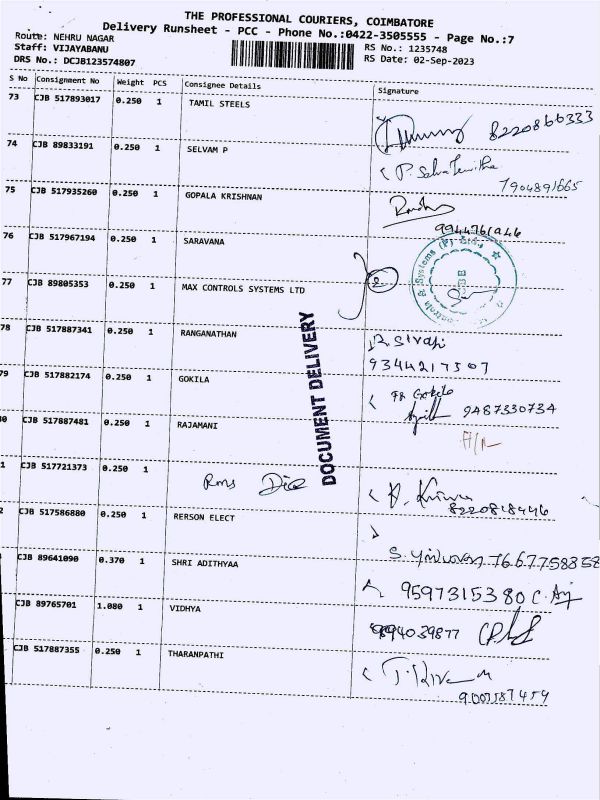 THE PROFESSIONAL COURIERS, COIMBATORE
Delivery Runsheet - PCC - Phone No.:0422-3505555 - Page No.:7
Route: NEHRU NAGAR
RS No.: 1235748
Staff: VIJAYABANU
RS Date: 02-Sep-2023
DRS No.: DCJB123574807
S No Consignment No Weight PCS Consignee Details Signature
73 CJB 517893017 0.250 1 TAMIL STEELS
8220866333
74 CJB 89833191 0.250 1 SELVAM P
7904891665
75 CJB 517935260 0.250 1 GOPALA KRISHNAN
76 CJB 517967194 0.250 1 SARAVANA
77 CJB 89805353 0.250 1 MAX CONTROLS SYSTEMS LTD
2
78 CJB 517887341 0.250 1 RANGANATHAN
9344217507
79 CJB 517882174 0.250 1 GOKILA
9487330734
80 CJB 517887481 0.250 1 RAJAMANI
DOCUMENT DELIVERY
1 CJB 517721373 0.250 1
8220818446
2 CJB 517586880 0.250 1 RERSON ELECT
7667758858
CJB 89641090 0.370 1 SHRI ADITHYAA
9597315380
CJB 89765701 1.080 1 VIDHYA
9894039877
CJB 517887355 0.250 1 THARANPATHI